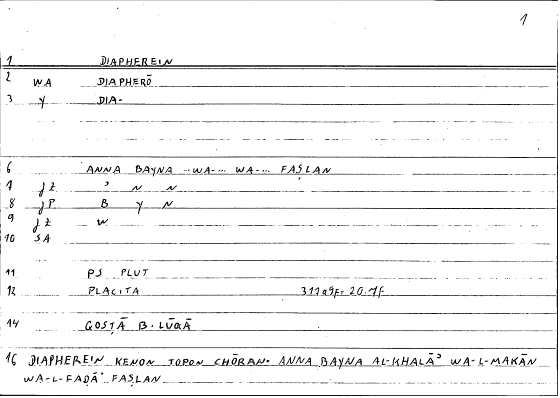 1
1 DIAPHEREIN
2 WA DIAPHERŌ
3 Y DIA-
6 ANNA BAYNA ... WA-... WA-... FAṢLAN
1 JZ ʾ N N
8 JP B Y N
9 JZ W
10 SA
11 PS PLUT
12 PLACITA 311a9F= 20.1f
14 QOSṬĀ B. LŪQĀ
16 DIAPHEREIN KENON TOPON CHŌRAN. ANNA BAYNA AL-KHALĀʾ WA-L-MAKĀN
WA-L-FAḌĀʾ FAṢLAN